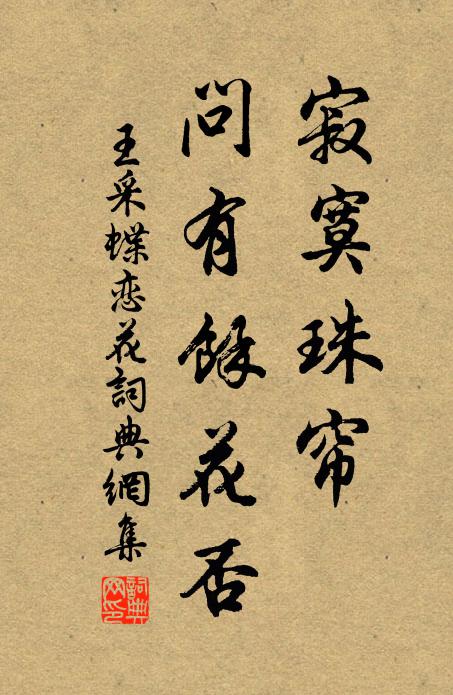 寂寞珠帘
問有餘花否
王采蝶恋花詞典網集
詞典网印